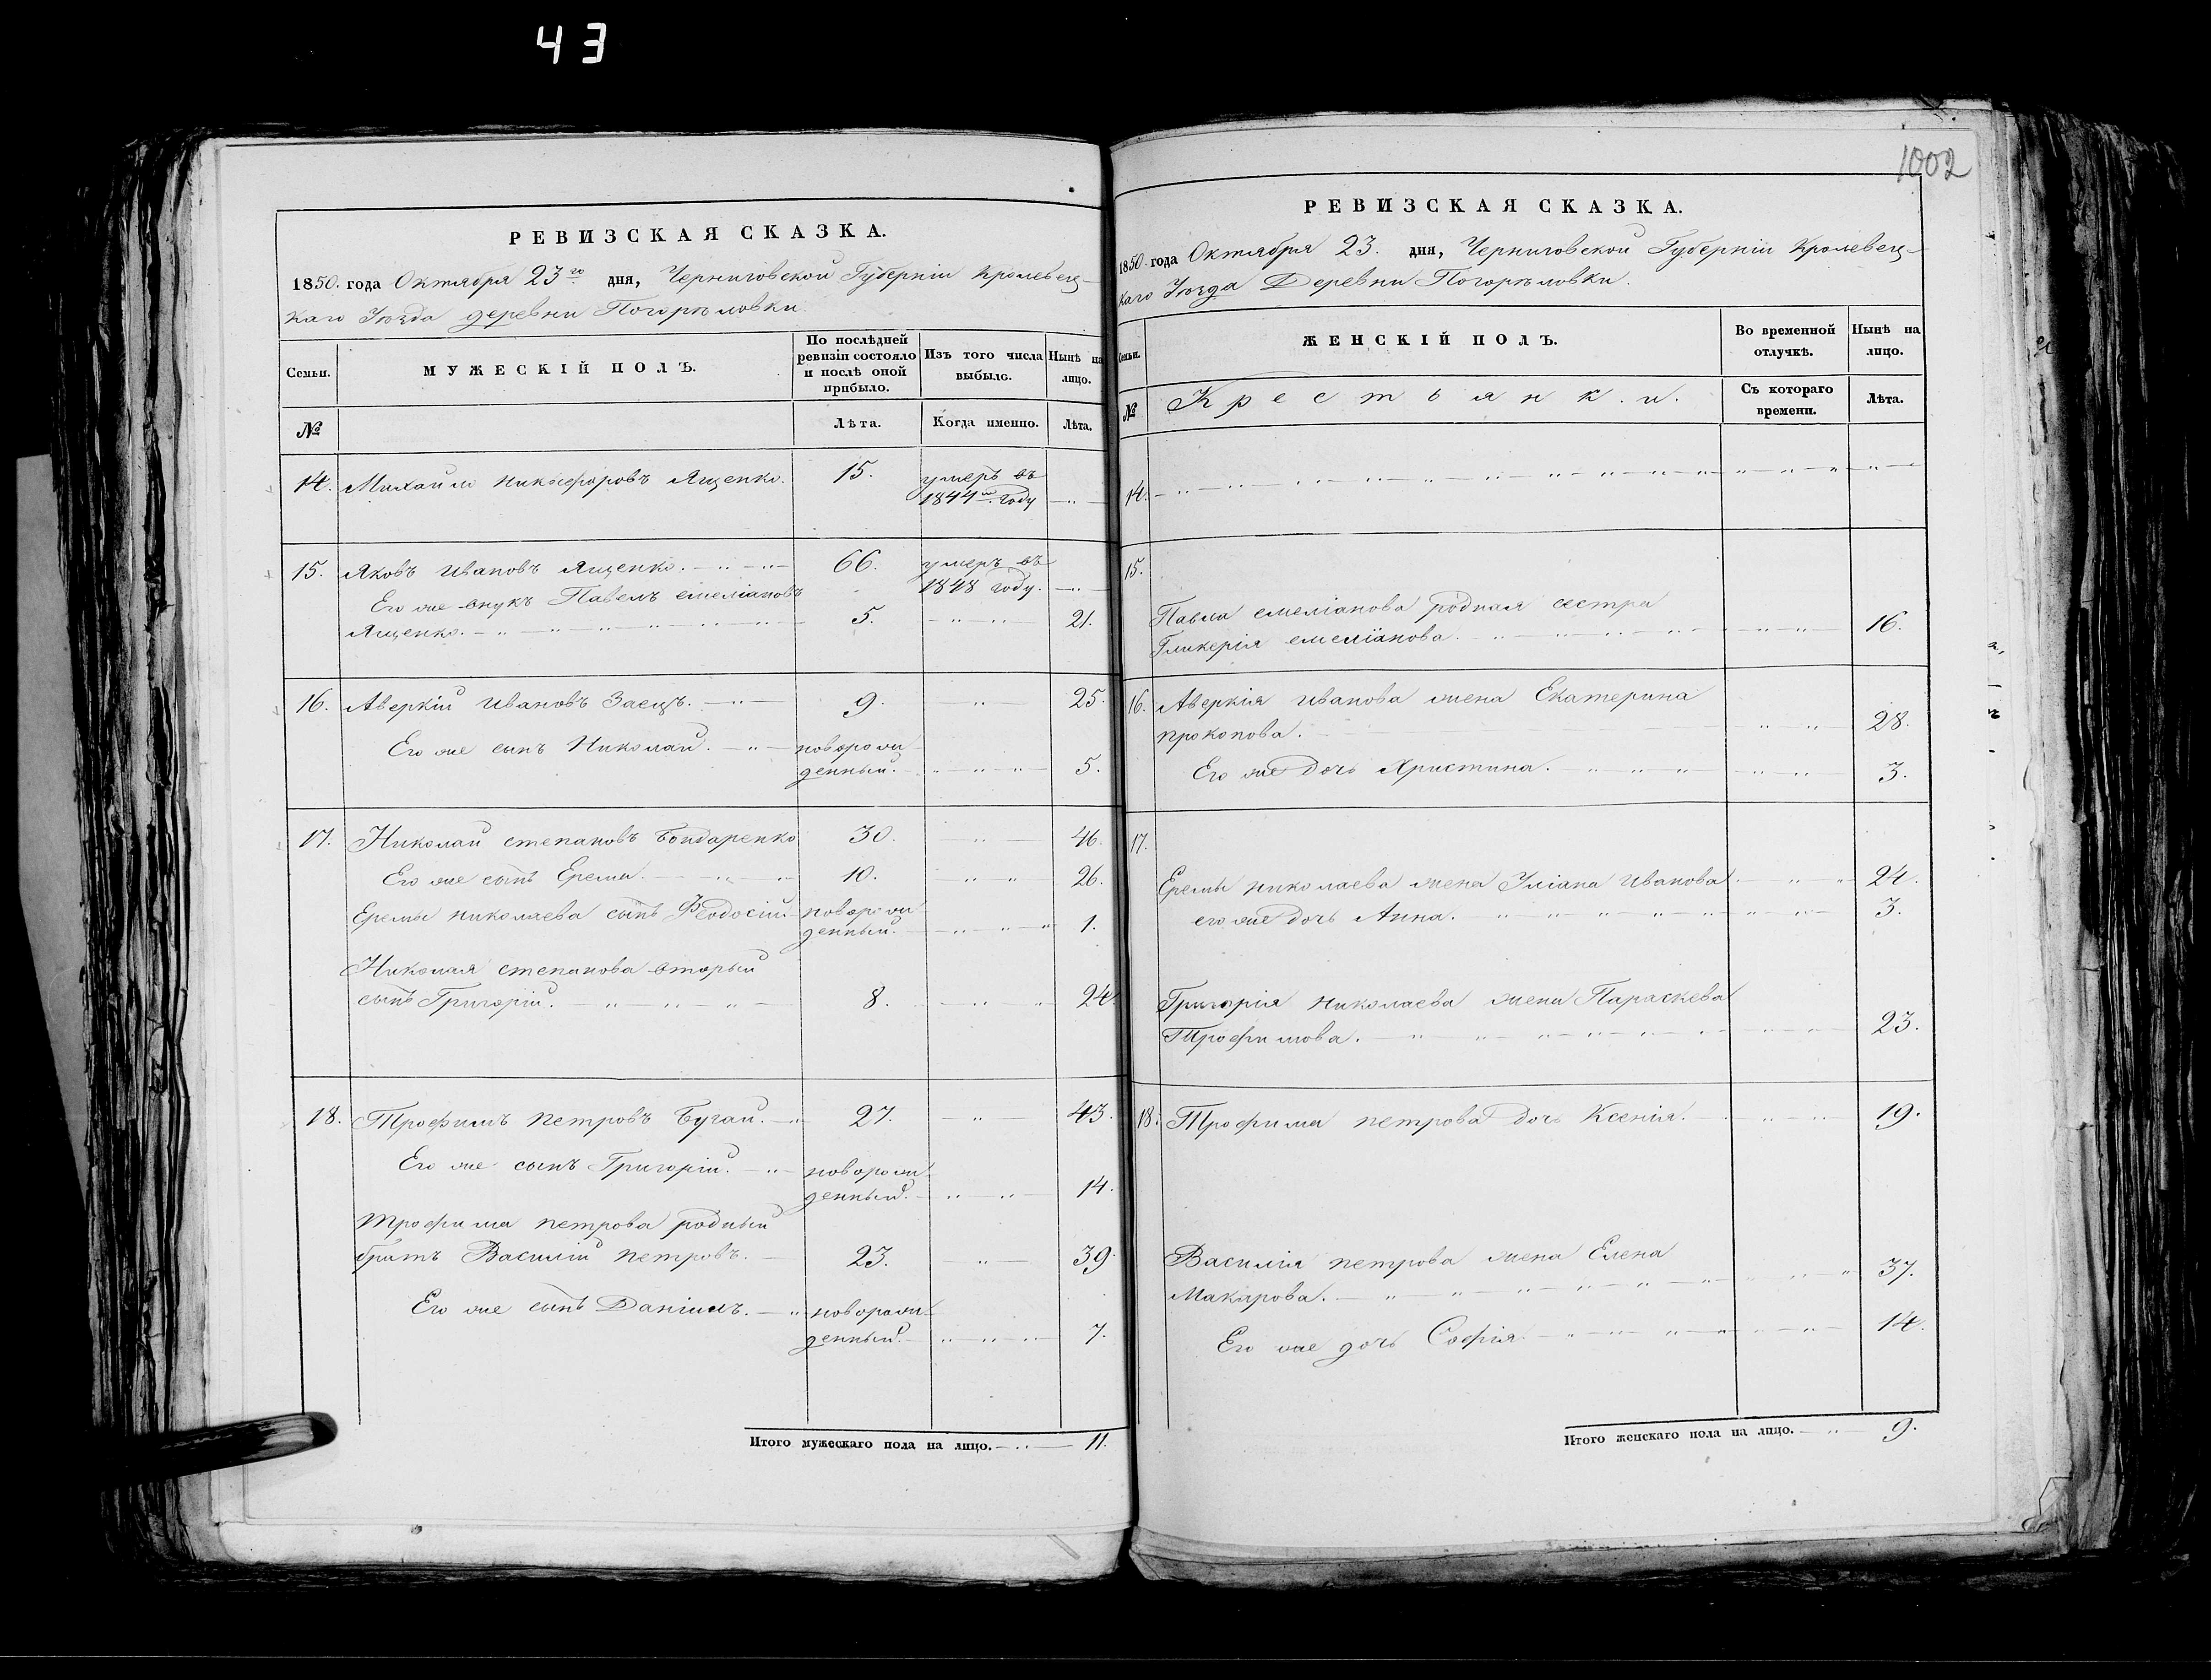 43
РЕВИЗСКАЯ СКАЗКА.
1850. года Октября 23го дня, Черниговской Губерніи Кролевец-
каго Уѣзда деревни Погорѣловки.
Семьи.
МУЖЕСКІЙ ПОЛЪ.
По послѣдней ревизіи состояло и послѣ оной прибыло.
Изъ того числа выбыло.
Нынѣ на лицо.
№
Лѣта.
Когда именно.
Лѣта.
14. Михайло Никифоровъ Ященко. 15. умеръ въ
1844мъ году
15. Яковъ Ивановъ Ященко. 66. умеръ въ
1848 году.
Его же внукъ Павелъ Емеліановъ
Ященко. 5. 21.
16. Аверкій Ивановъ Заецъ. 9. 25.
Его же сынъ Николай. новорож-
денный. 5.
17. Николай Степановъ Бондаренко 30. 46.
Его же сынъ Ерема. 10. 26.
Еремы Николаева сынъ Феодосій новорож-
денный. 1.
Николая Степанова вторый
сынъ Григорій. 8. 24.
18. Трофимъ Петровъ Бугай. 27. 43.
Его же сынъ Григорій. новорож-
денный. 14.
Трофима Петрова родный
братъ Василій Петровъ. 23. 39.
Его же сынъ Даніилъ. новорож-
денный. 7.
Итого мужескаго пола на лицо. 11.
1002
РЕВИЗСКАЯ СКАЗКА.
1850. года Октября 23. дня, Черниговской Губерніи Кролевец-
каго Уѣзда Деревни Погорѣловки.
Семьи.
ЖЕНСКІЙ ПОЛЪ.
Во временной отлучкѣ.
Нынѣ на лицо.
№
Крестьянки.
Съ котораго времени.
Лѣта.
14.
15.
Павла Емеліанова родная сестра
Гликерія Емеліанова. 16.
16. Аверкія Иванова жена Екатерина
Прокопова. 28.
Его же дочь Христина. 3.
17.
Еремы Николаева жена Уліана Иванова 24.
его же дочь Анна. 3.
Григорія Николаева жена Параскева
Трофимова. 23.
18. Трофима Петрова дочь Ксенія. 19.
Василія Петрова жена Елена
Макарова. 37.
Его же дочь Софія 14.
Итого женскаго пола на лицо. 9.